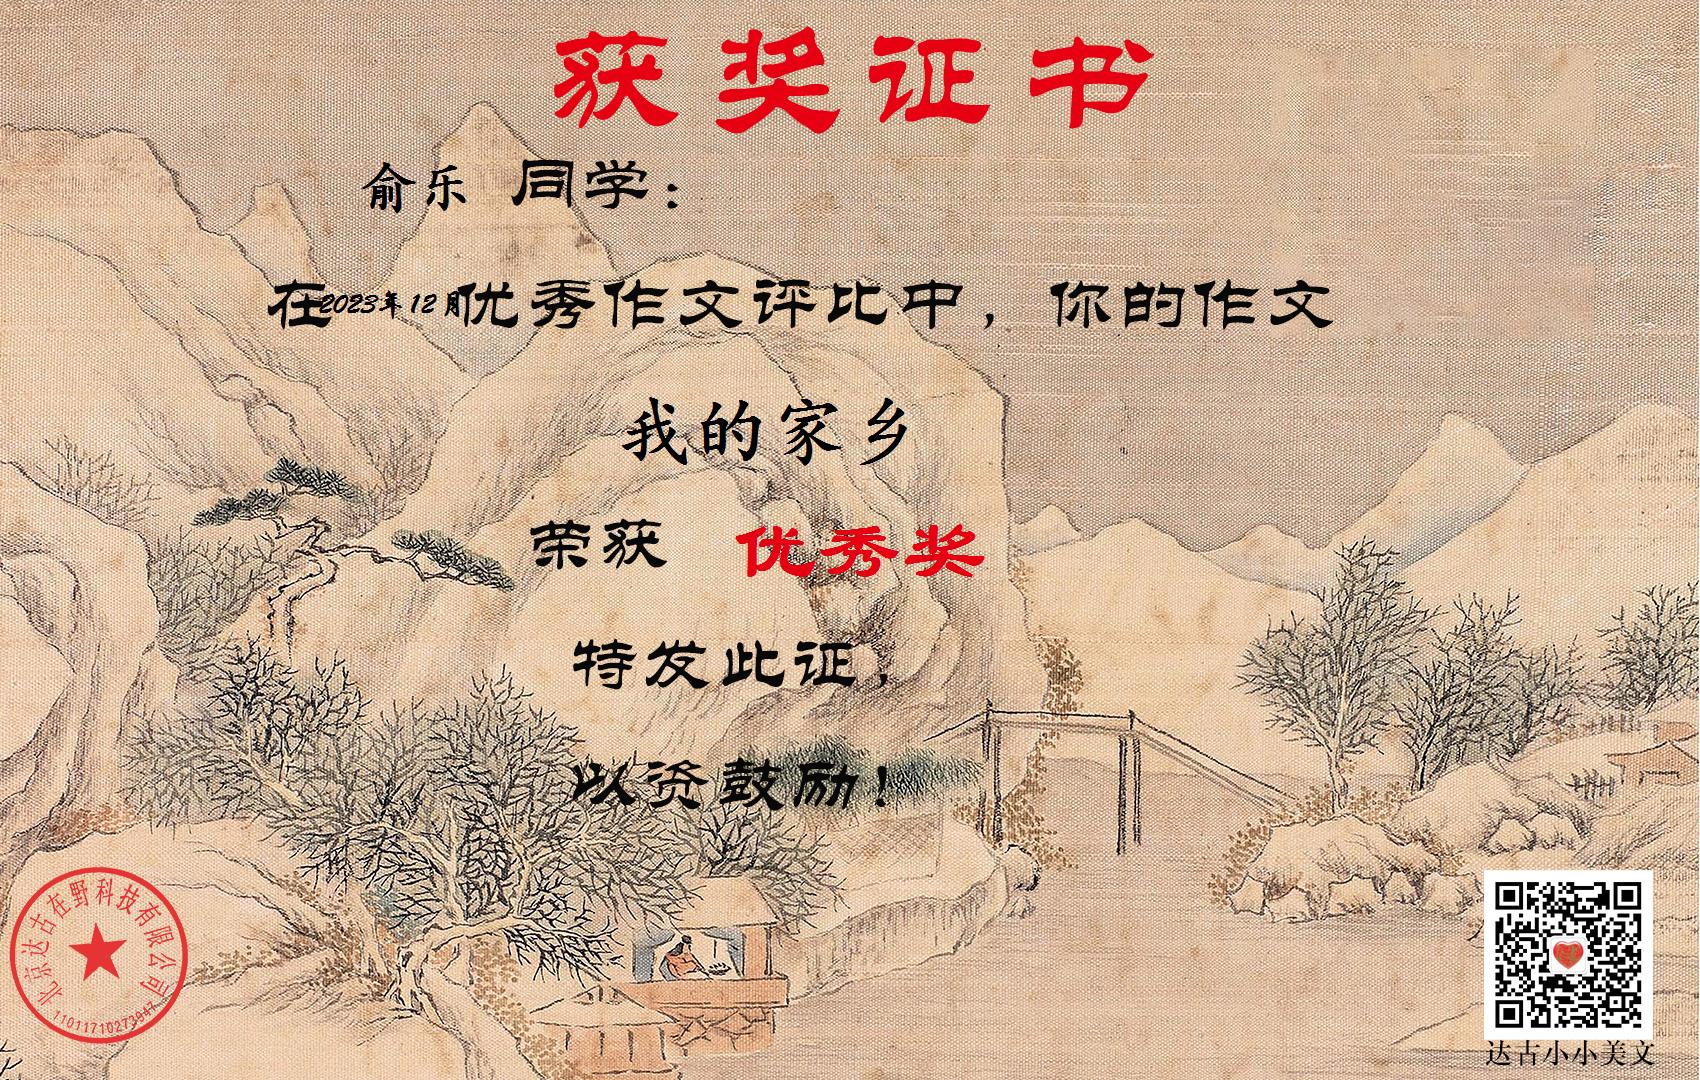 获奖证书
俞乐 同学：
在2023年12月优秀作文评比中，你的作文
我的家乡
荣获 优秀奖
特发此证，
以资鼓励！
北京达古在野科技有限公司
11011710273947
达古小小美文